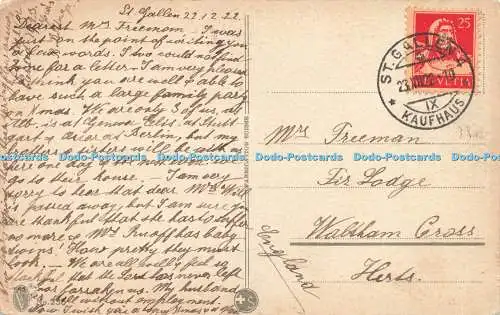 St. Gallen 22.12.22.
Dearest Mrs Freeman. I was
just on the point of writing you
a few words. I two could not find
time for a letter. I am very pleased
think you are well & able to
have such a large family party
on Xmas. We are only 3 of us, as
is at Geneva, Elsi at Stutt
gart at Berlin, but my
brothers & sisters will be
there one day
go to their house. I am very
sorry to hear that dear Mrs Will
is passed away, but I am sure you
are thankful that she has to suffer
no more & Mrs has baby
How pretty they must
look. We are all well, feel so
thankful that the Lord has never left
nor forsaken us. My husband
still without employment.
Now I wish you a Xmas &
Mrs Freeman
Fir Lodge
Waltham Cross
Herts.
England
25
HELVETIA
ST. GALLEN
23.XII.22
IX
KAUFHAUS
Dodo-Postcards Dodo-Postcards Dodo-Postcards Dodo-Postcards Dodo-Postcards Dodo-Postcards